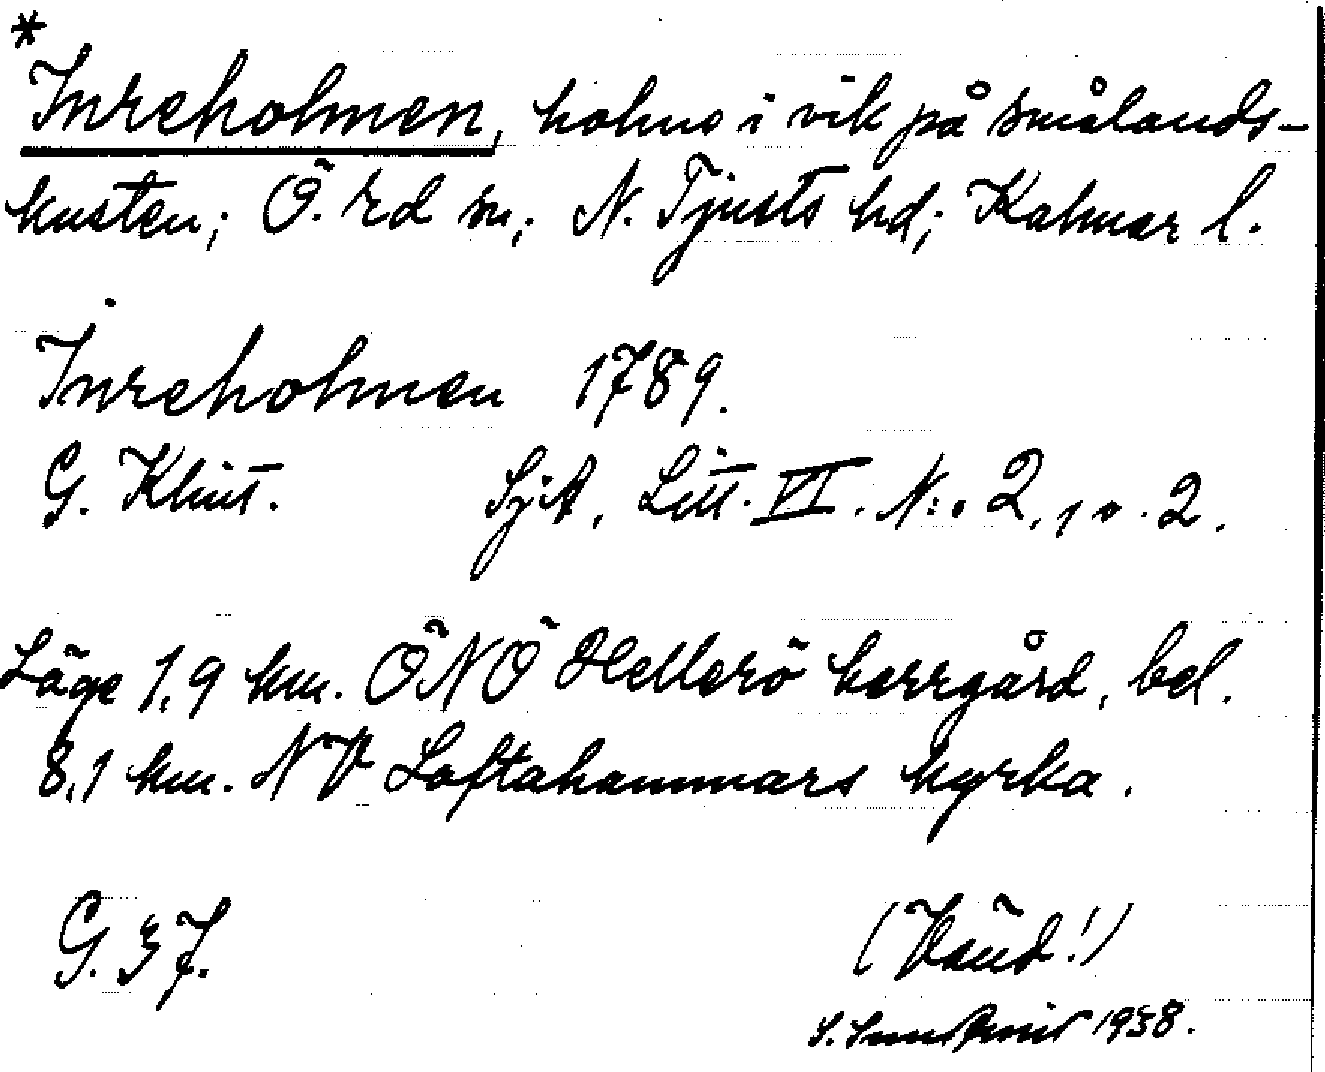 *
Inreholmen, holme i vik på smålands-
kusten; Ö. Ed sn; N. Tjusts hd; Kalmar l.
Inreholmen 1789.
G. Klint. SjA, Litt. VI. N:o 2, 1 o. 2.
Läge 1,9 km. ÖNÖ Hellerö herrgård, bel.
8,1 km. NV Loftahammars kyrka.
G. 37. (Vänd!)
S. 1938.